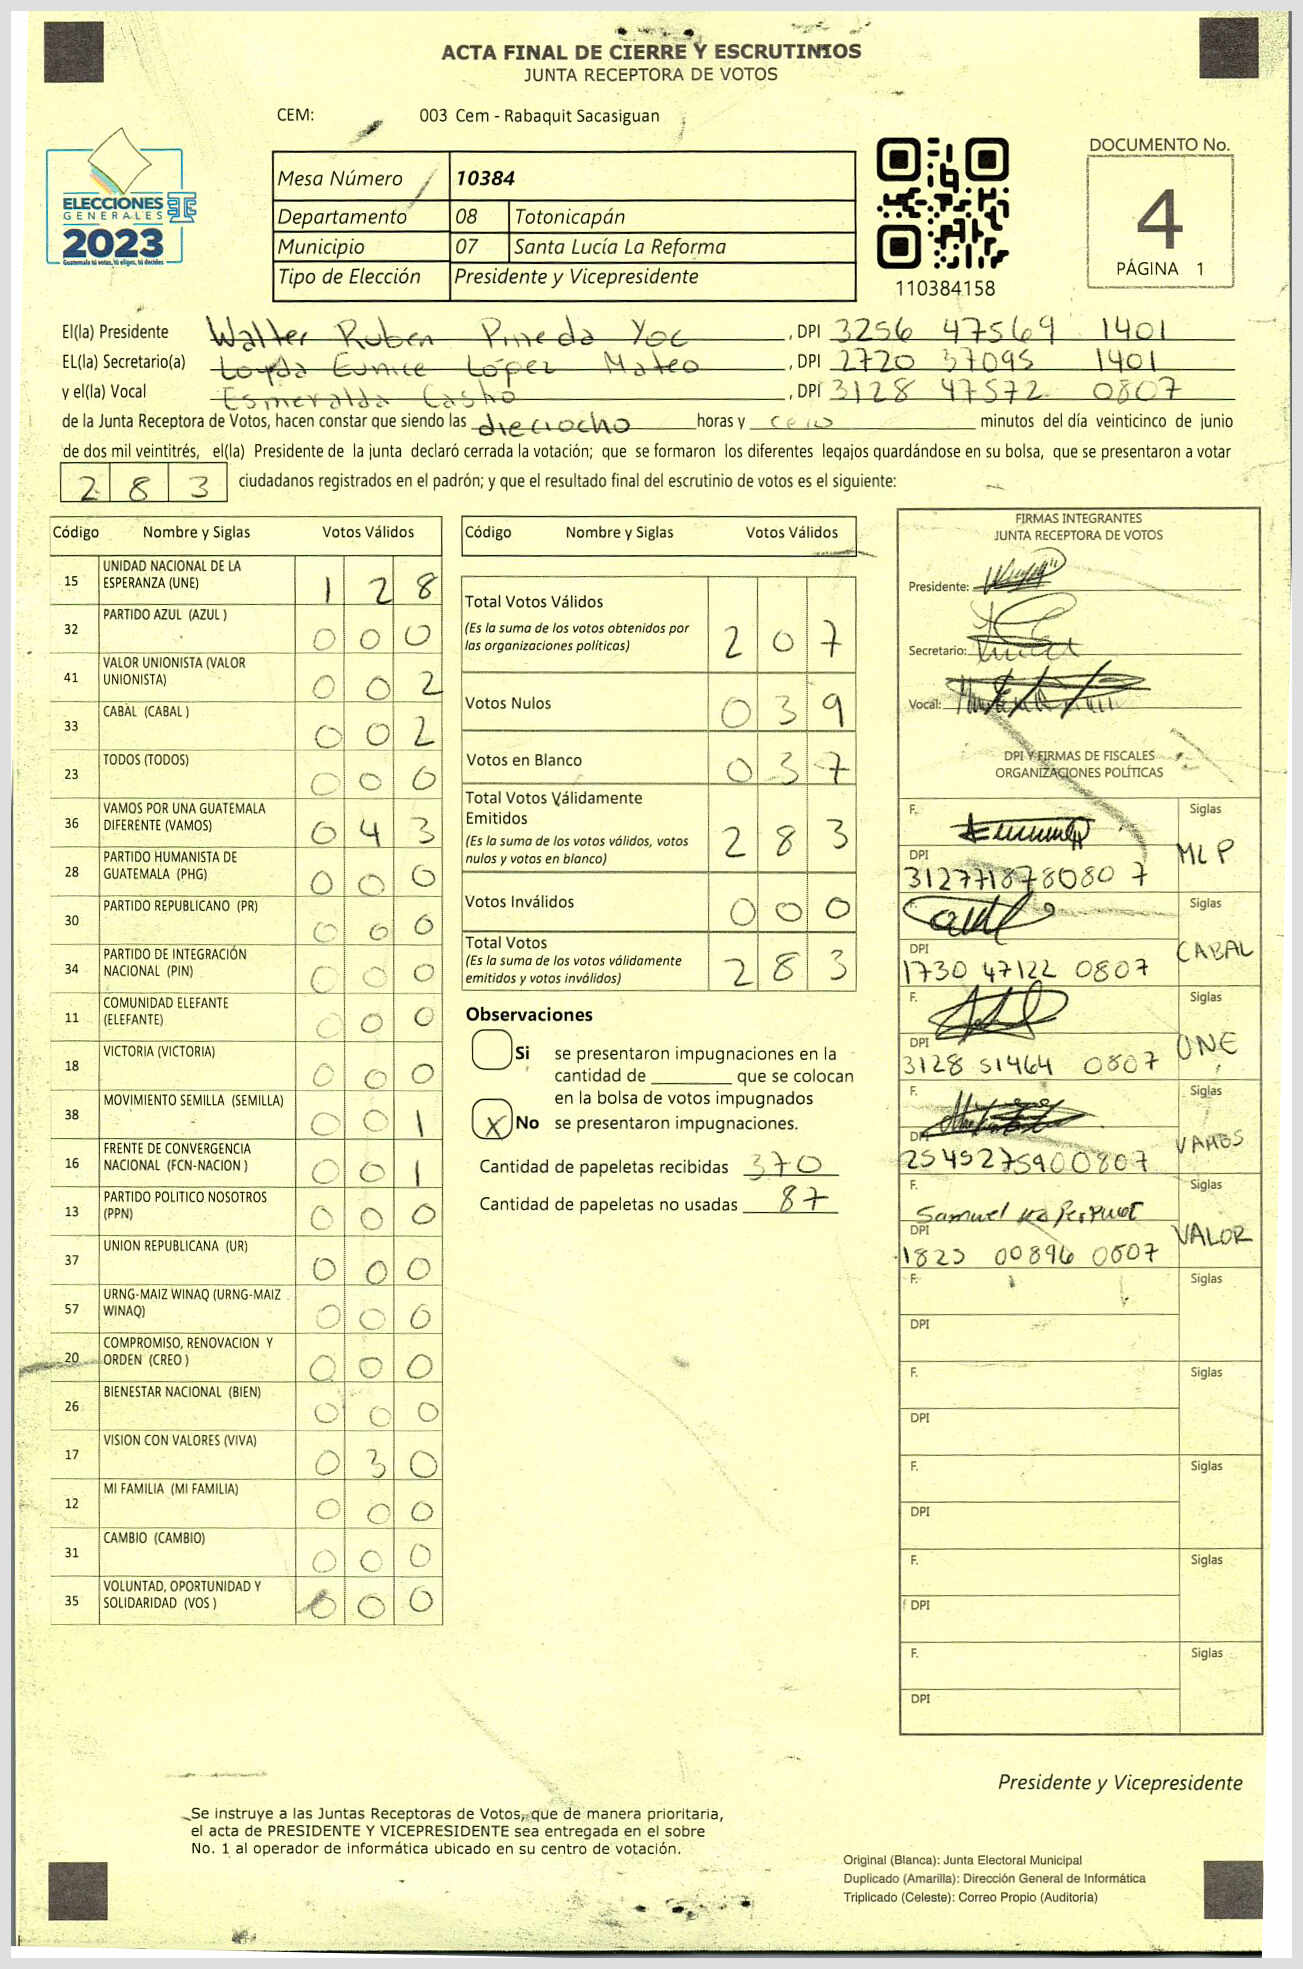 ACTA FINAL DE CIERRE Y ESCRUTINIOS
JUNTA RECEPTORA DE VOTOS
CEM: 003 Cem - Rabaquit Sacasiguan
ELECCIONES
GENERALES
2023
Guatemala tú votas, tú eliges, tú decides
Mesa Número 10384
Departamento 08 Totonicapán
Municipio 07 Santa Lucía La Reforma
Tipo de Elección Presidente y Vicepresidente
110384158
DOCUMENTO No.
4
PÁGINA 1
El(la) Presidente Walter Ruben Pineda Yoc, DPI 3256 47569 1401
EL(la) Secretario(a) Loyda Eunice López Mateo, DPI 2720 37095 1401
y el(la) Vocal Esmeralda Castro, DPI 3128 47572 0807
de la Junta Receptora de Votos, hacen constar que siendo las dieciocho horas y cero minutos del día veinticinco de junio
de dos mil veintitrés, el(la) Presidente de la junta declaró cerrada la votación; que se formaron los diferentes legajos guardándose en su bolsa, que se presentaron a votar
283 ciudadanos registrados en el padrón; y que el resultado final del escrutinio de votos es el siguiente:
Código Nombre y Siglas Votos Válidos
15 UNIDAD NACIONAL DE LA ESPERANZA (UNE) 1 2 8
32 PARTIDO AZUL (AZUL ) 0 0 0
41 VALOR UNIONISTA (VALOR UNIONISTA) 0 0 2
33 CABAL (CABAL ) 0 0 2
23 TODOS (TODOS) 0 0 0
36 VAMOS POR UNA GUATEMALA DIFERENTE (VAMOS) 0 4 3
28 PARTIDO HUMANISTA DE GUATEMALA (PHG) 0 0 0
30 PARTIDO REPUBLICANO (PR) 0 0 0
34 PARTIDO DE INTEGRACIÓN NACIONAL (PIN) 0 0 0
11 COMUNIDAD ELEFANTE (ELEFANTE) 0 0 0
18 VICTORIA (VICTORIA) 0 0 0
38 MOVIMIENTO SEMILLA (SEMILLA) 0 0 1
16 FRENTE DE CONVERGENCIA NACIONAL (FCN-NACION ) 0 0 1
13 PARTIDO POLITICO NOSOTROS (PPN) 0 0 0
37 UNION REPUBLICANA (UR) 0 0 0
57 URNG-MAIZ WINAQ (URNG-MAIZ WINAQ) 0 0 0
20 COMPROMISO, RENOVACION Y ORDEN (CREO ) 0 0 0
26 BIENESTAR NACIONAL (BIEN) 0 0 0
17 VISION CON VALORES (VIVA) 0 3 0
12 MI FAMILIA (MI FAMILIA) 0 0 0
31 CAMBIO (CAMBIO) 0 0 0
35 VOLUNTAD, OPORTUNIDAD Y SOLIDARIDAD (VOS ) 0 0 0
Código Nombre y Siglas Votos Válidos
Total Votos Válidos 2 0 7
(Es la suma de los votos obtenidos por
las organizaciones políticas)
Votos Nulos 0 3 9
Votos en Blanco 0 3 7
Total Votos Válidamente
Emitidos 2 8 3
(Es la suma de los votos válidos, votos
nulos y votos en blanco)
Votos Inválidos 0 0 0
Total Votos 2 8 3
(Es la suma de los votos válidamente
emitidos y votos inválidos)
Observaciones
Si se presentaron impugnaciones en la
cantidad de ________ que se colocan
en la bolsa de votos impugnados
X No se presentaron impugnaciones.
Cantidad de papeletas recibidas 370
Cantidad de papeletas no usadas 87
FIRMAS INTEGRANTES
JUNTA RECEPTORA DE VOTOS
Presidente:
Secretario:
Vocal:
DPI Y FIRMAS DE FISCALES
ORGANIZACIONES POLÍTICAS
F. Siglas MLP
DPI 3127718780807
F. Siglas CABAL
DPI 1730 47122 0807
F. Siglas UNE
DPI 3128 51464 0807
F. Siglas VAMOS
DPI 2545275900807
F. Samuel Siglas VALOR
DPI 1823 00896 0807
F. Siglas
DPI
F. Siglas
DPI
F. Siglas
DPI
F. Siglas
DPI
F. Siglas
DPI
Presidente y Vicepresidente
Se instruye a las Juntas Receptoras de Votos, que de manera prioritaria,
el acta de PRESIDENTE Y VICEPRESIDENTE sea entregada en el sobre
No. 1 al operador de informática ubicado en su centro de votación.
Original (Blanca): Junta Electoral Municipal
Duplicado (Amarilla): Dirección General de Informática
Triplicado (Celeste): Correo Propio (Auditoría)